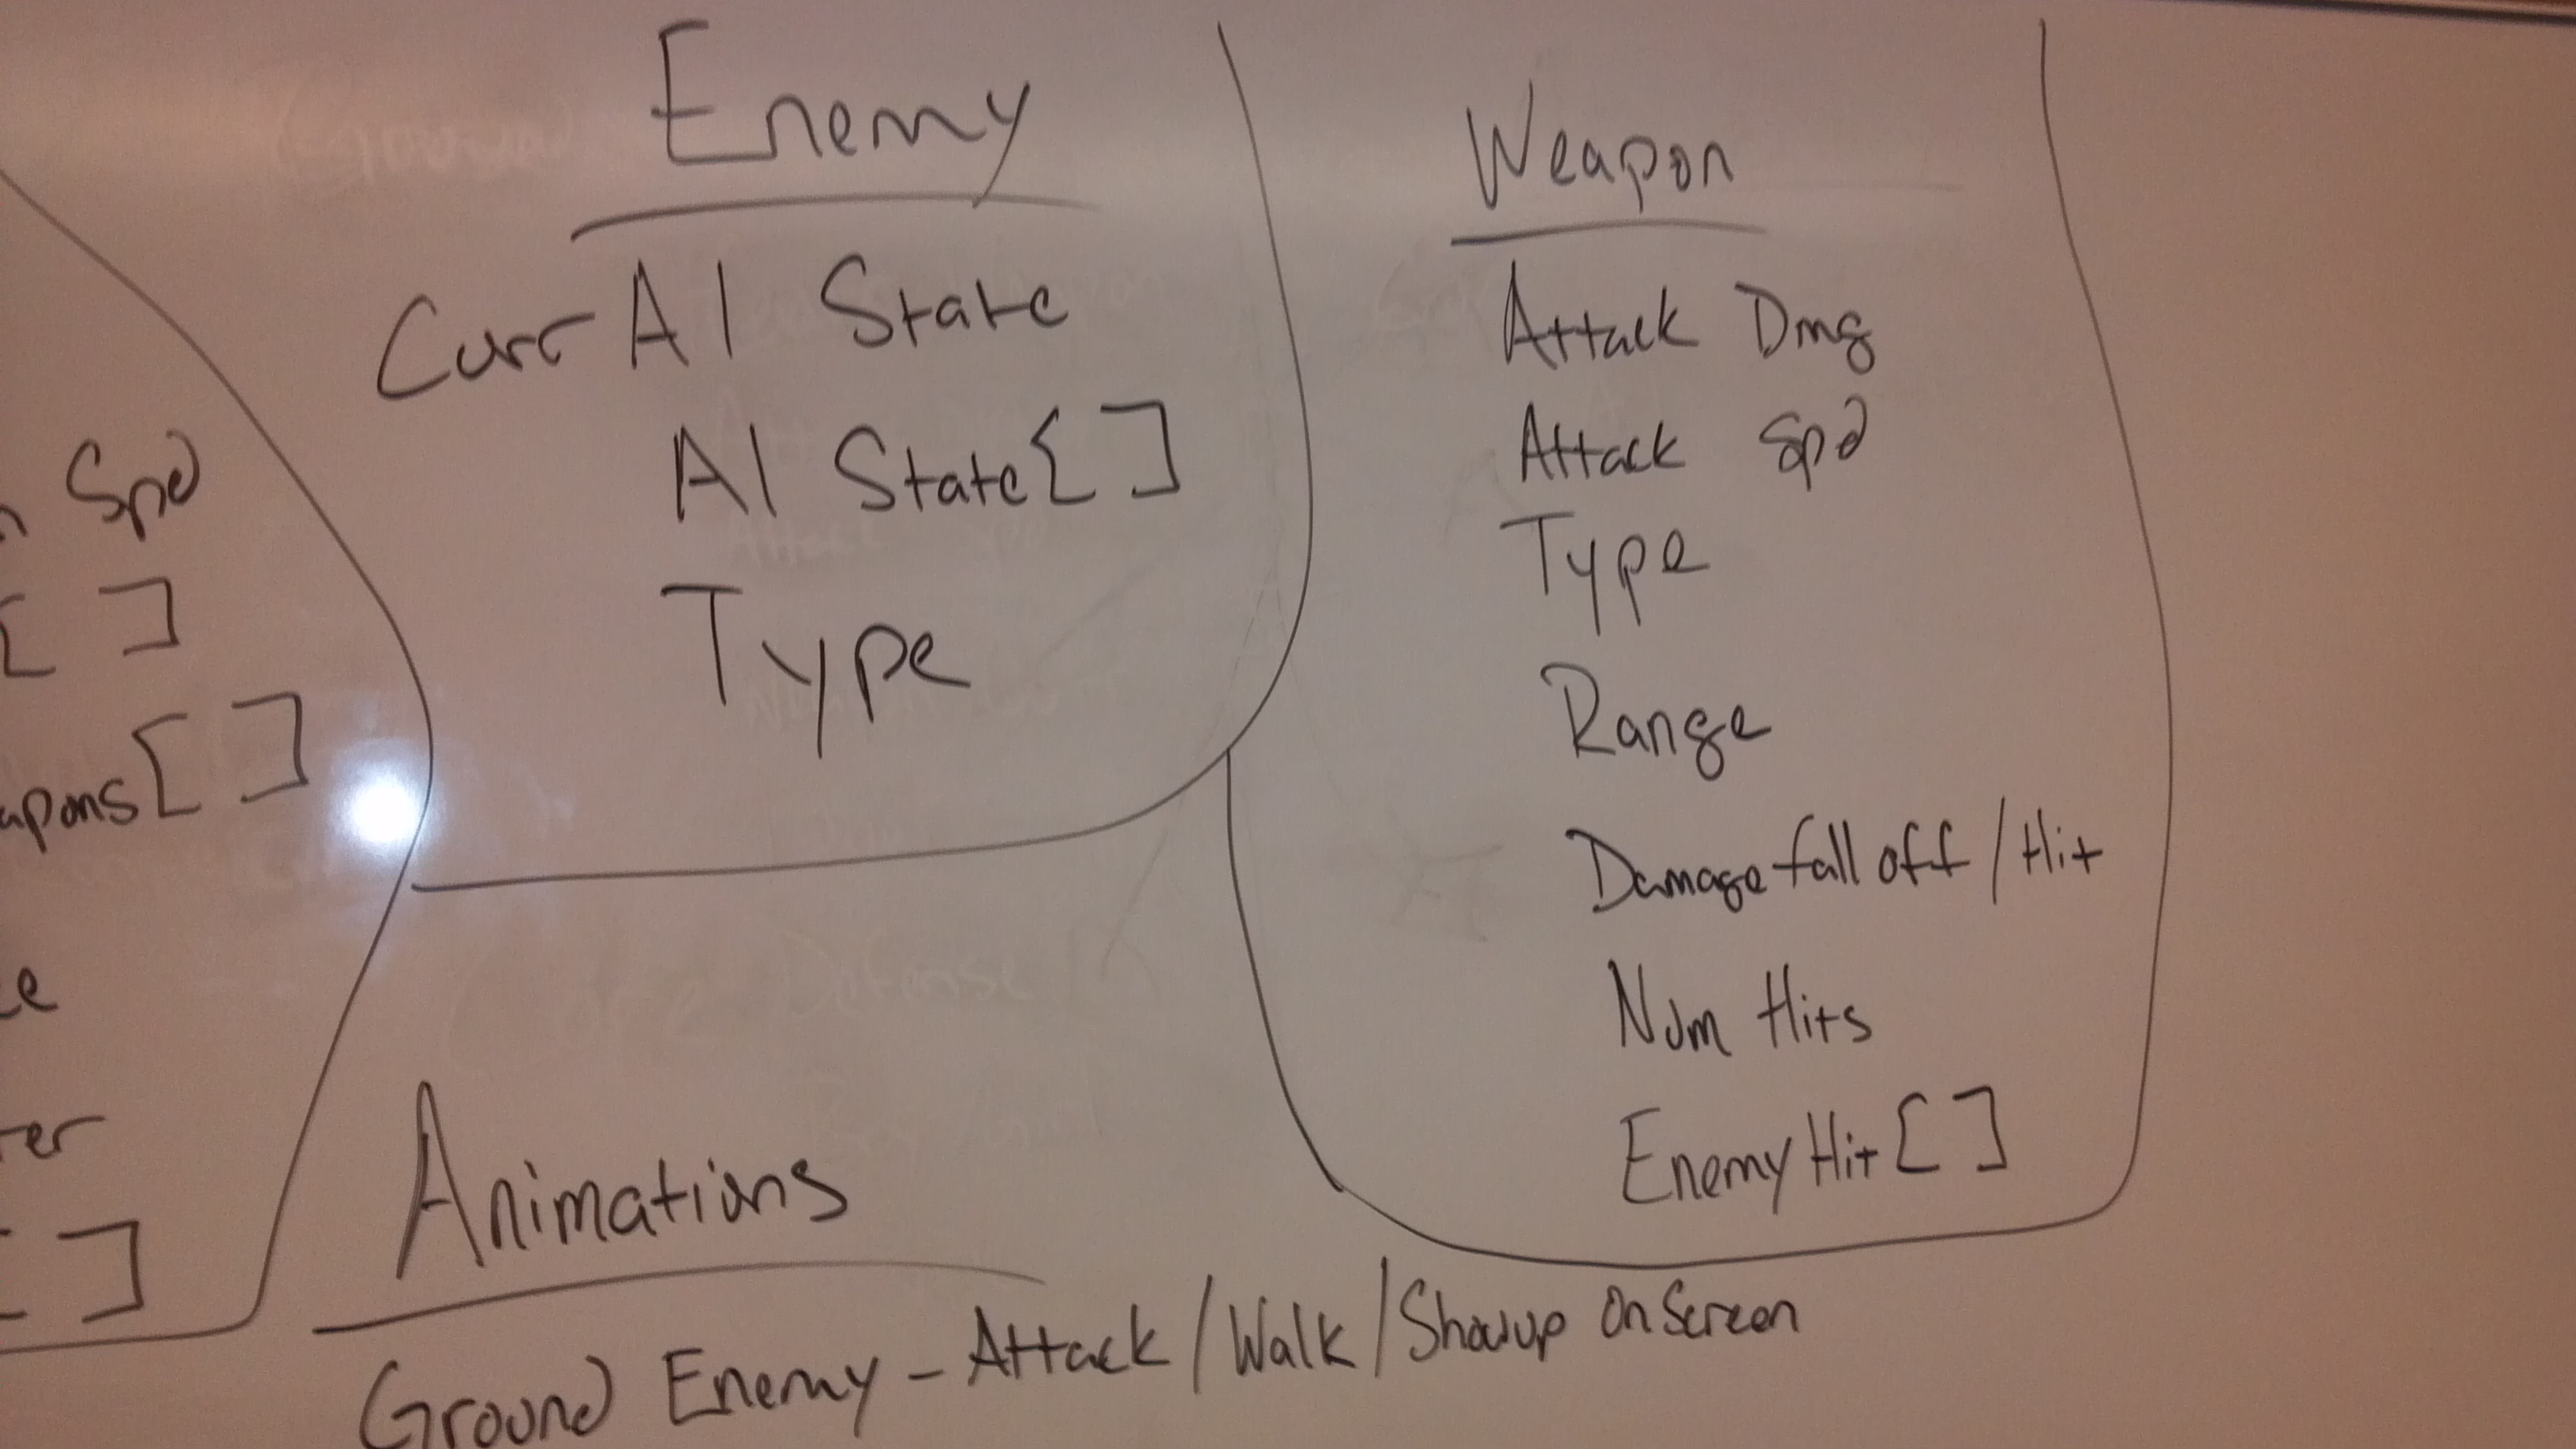 Spd
[ ]
[ ]
[ ]
Enemy
Curr AI State
AI State[ ]
Type
Weapon
Attack Dmg
Attack Spd
Type
Range
Damage fall off / Hit
Num Hits
Enemy Hit [ ]
Animations
Ground Enemy - Attack / Walk / Showup On Screen